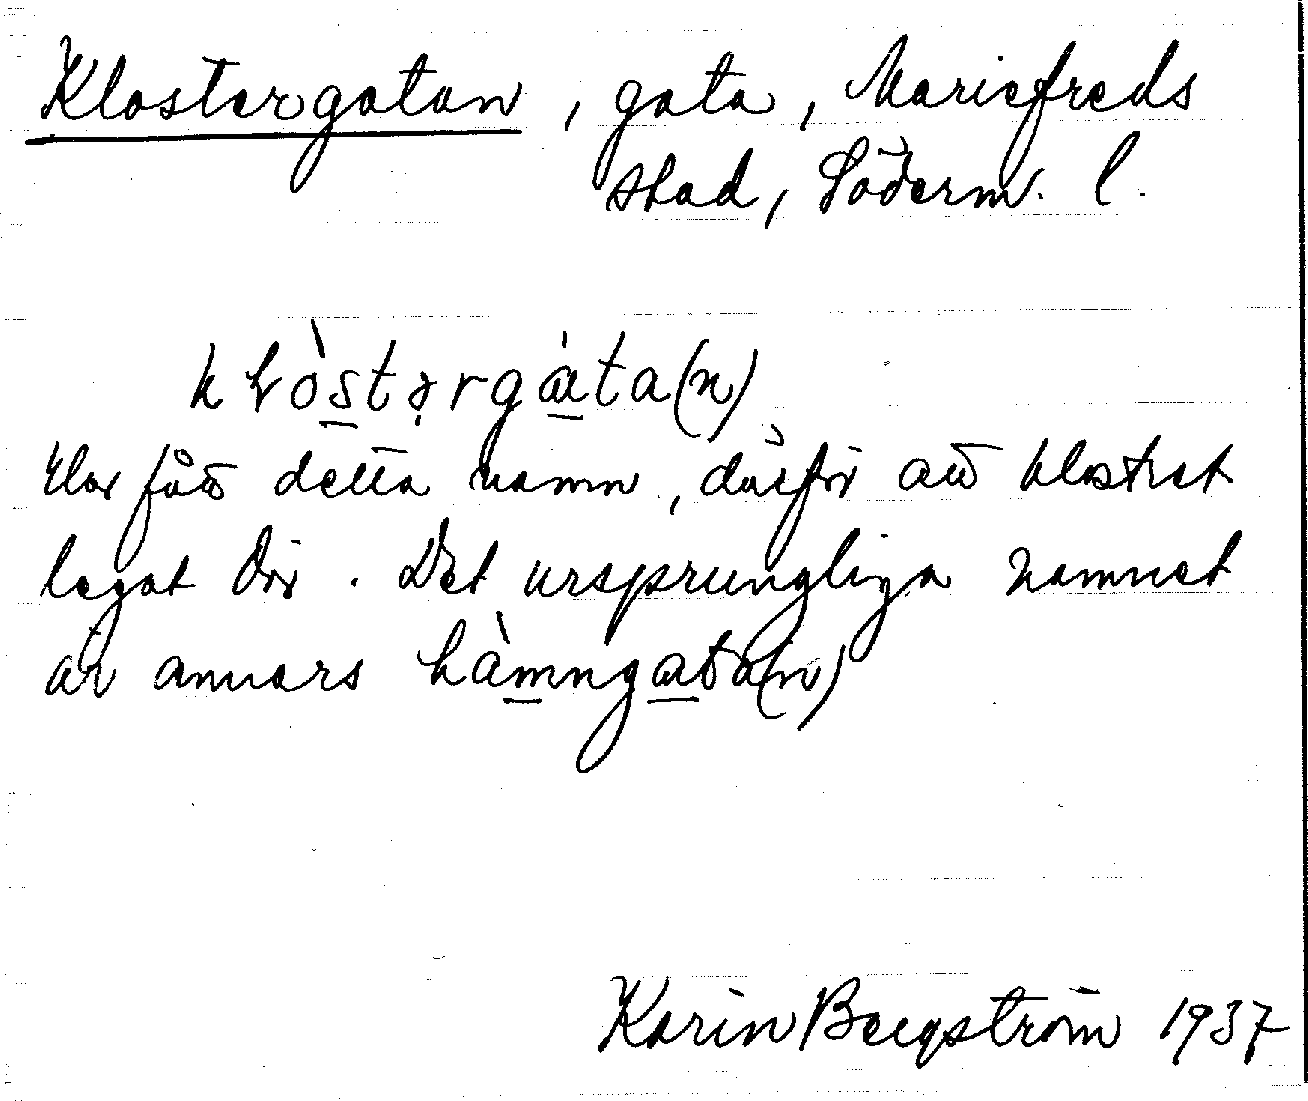 Klostergatan, gata, Mariefreds
stad, Söderm. l.
kɬòstərgàta(n)
Har fått detta namn, därför att klostret
legat där. Det ursprungliga namnet
är annars hàmngata(n)
Karin Bergström 1937